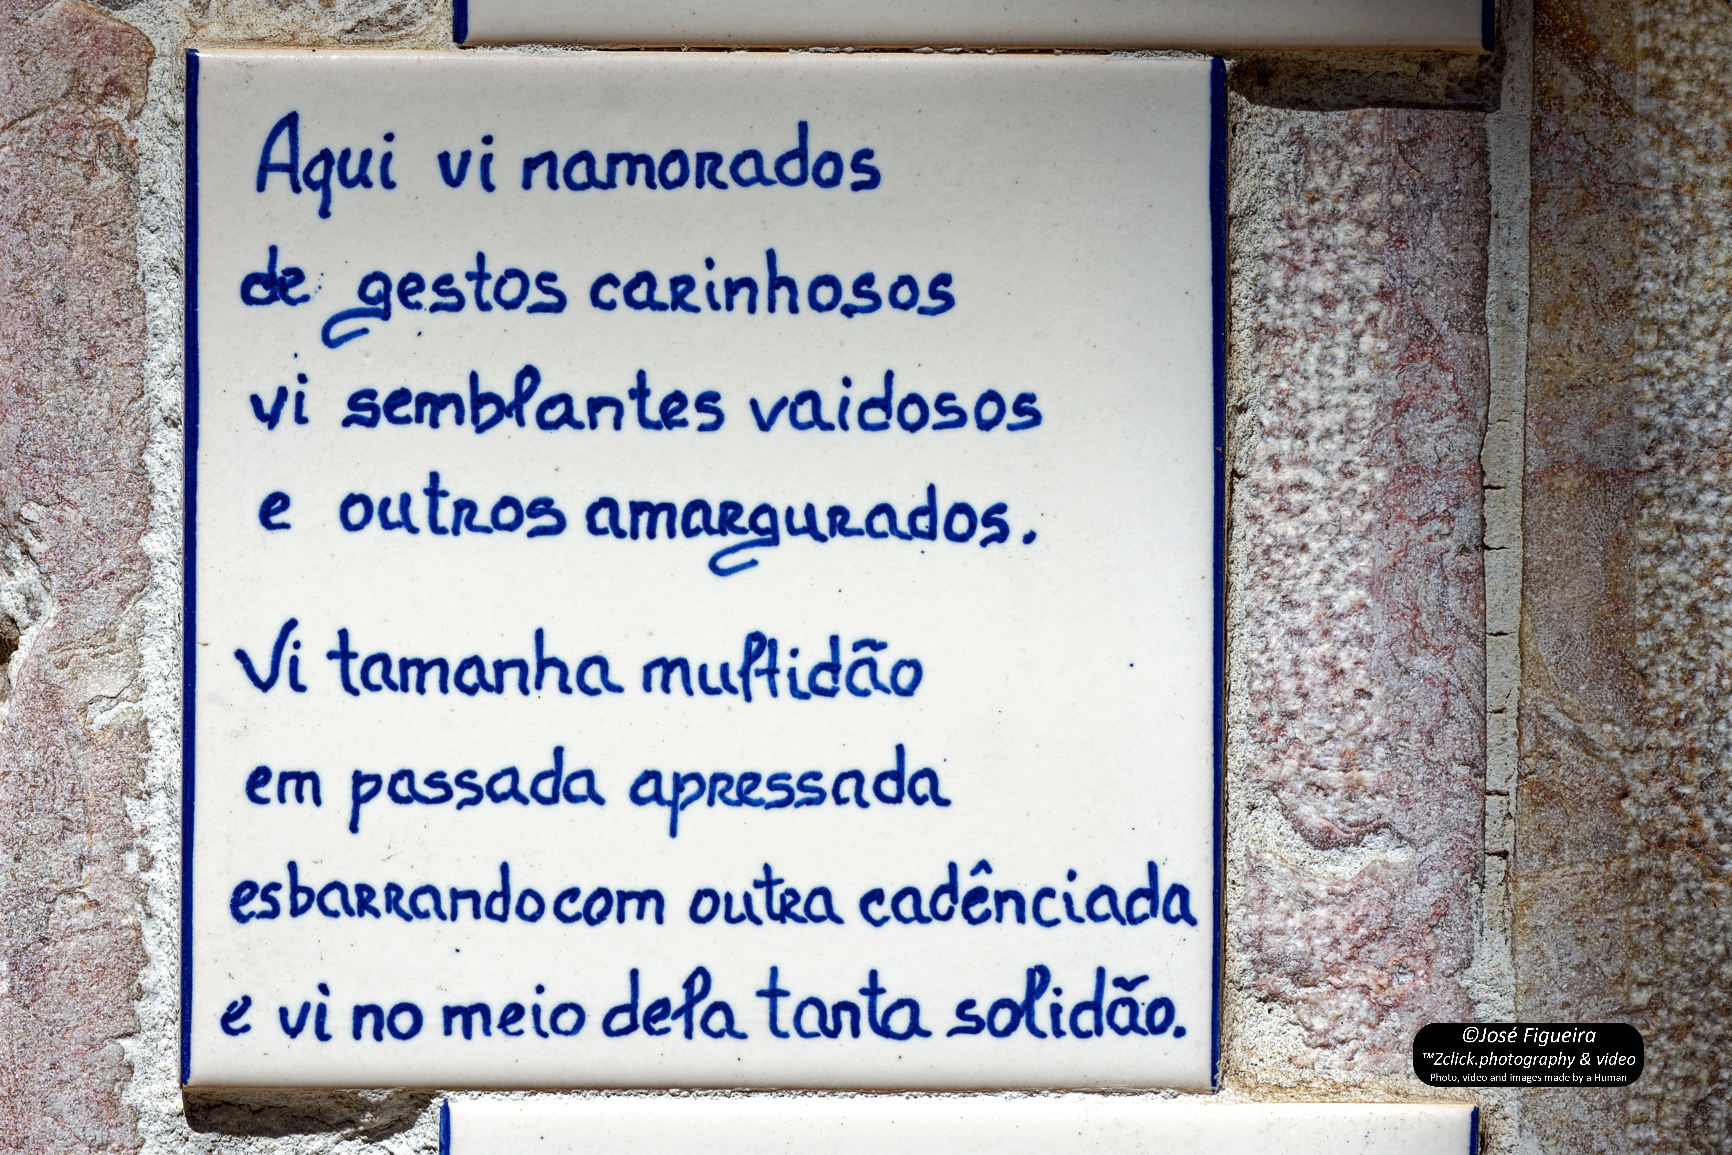 Aqui vi namorados
de gestos carinhosos
vi semblantes vaidosos
e outros amargurados.
Vi tamanha multidão
em passada apressada
esbarrando com outra cadênciada
e vi no meio dela tanta solidão.
©José Figueira
™Zclick.photography & video
Photo, video and images made by a Human